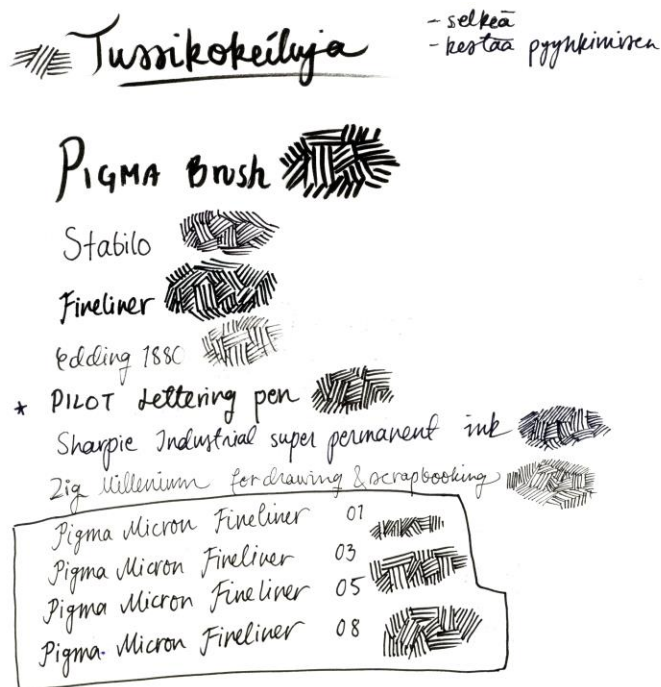 Tussikokeiluja
- selkeä
- kestää pyyhkimisen
PIGMA Brush
Stabilo
Fineliner
edding 1880
* PILOT Lettering pen
Sharpie Industrial super permanent ink
Zig Millenium for drawing & scrapbooking
Pigma Micron Fineliner 01
Pigma Micron Fineliner 03
Pigma Micron Fineliner 05
Pigma Micron Fineliner 08